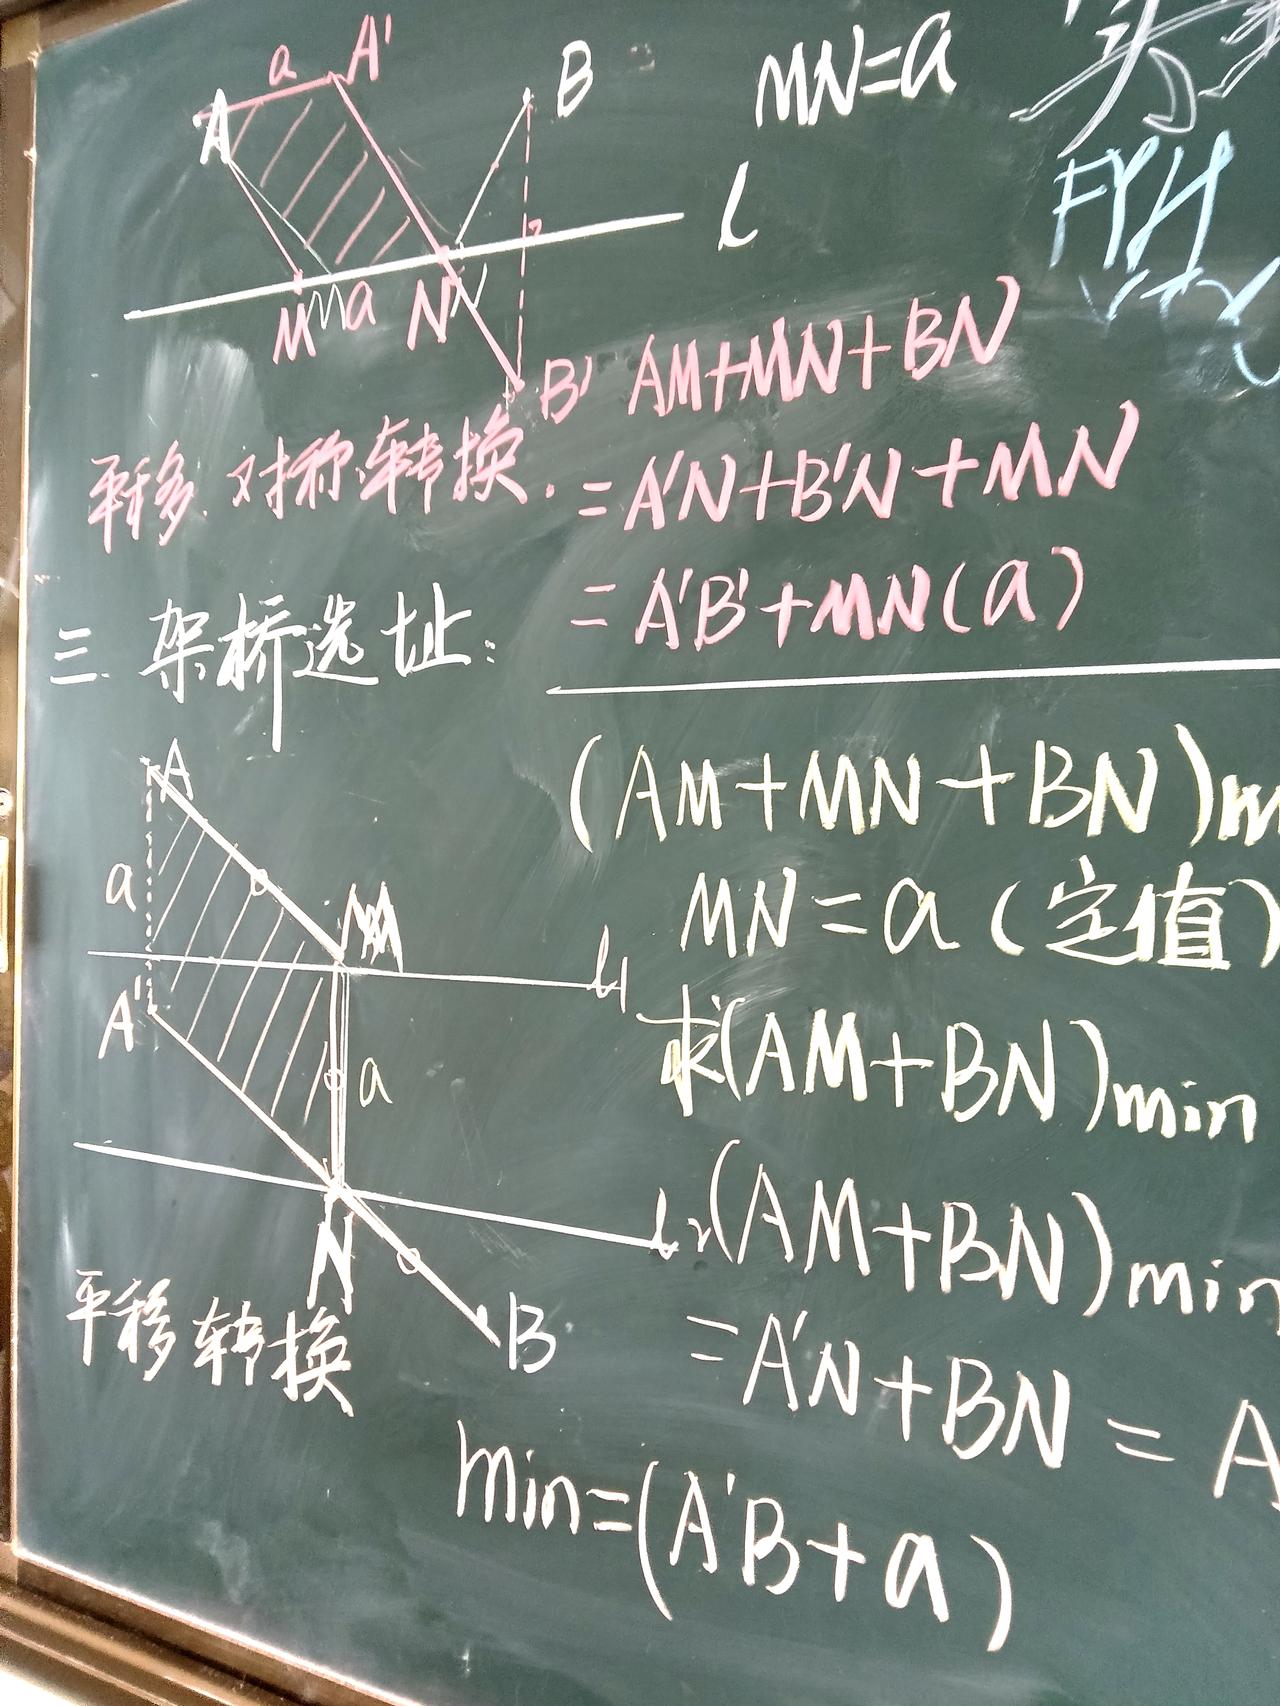 a A'
A B MN=a
l
FYH
M M a N N
B' AM+MN+BN
平移.对称转换. =A'N+B'N+MN
=A'B'+MN(a)
三.架桥选址:
A (AM+MN+BN)m
a MN=a(定值)
M l₁
A' 求(AM+BN)min
a
l₂ (AM+BN)min
N
平移转换 B =A'N+BN=A
min=(A'B+a)